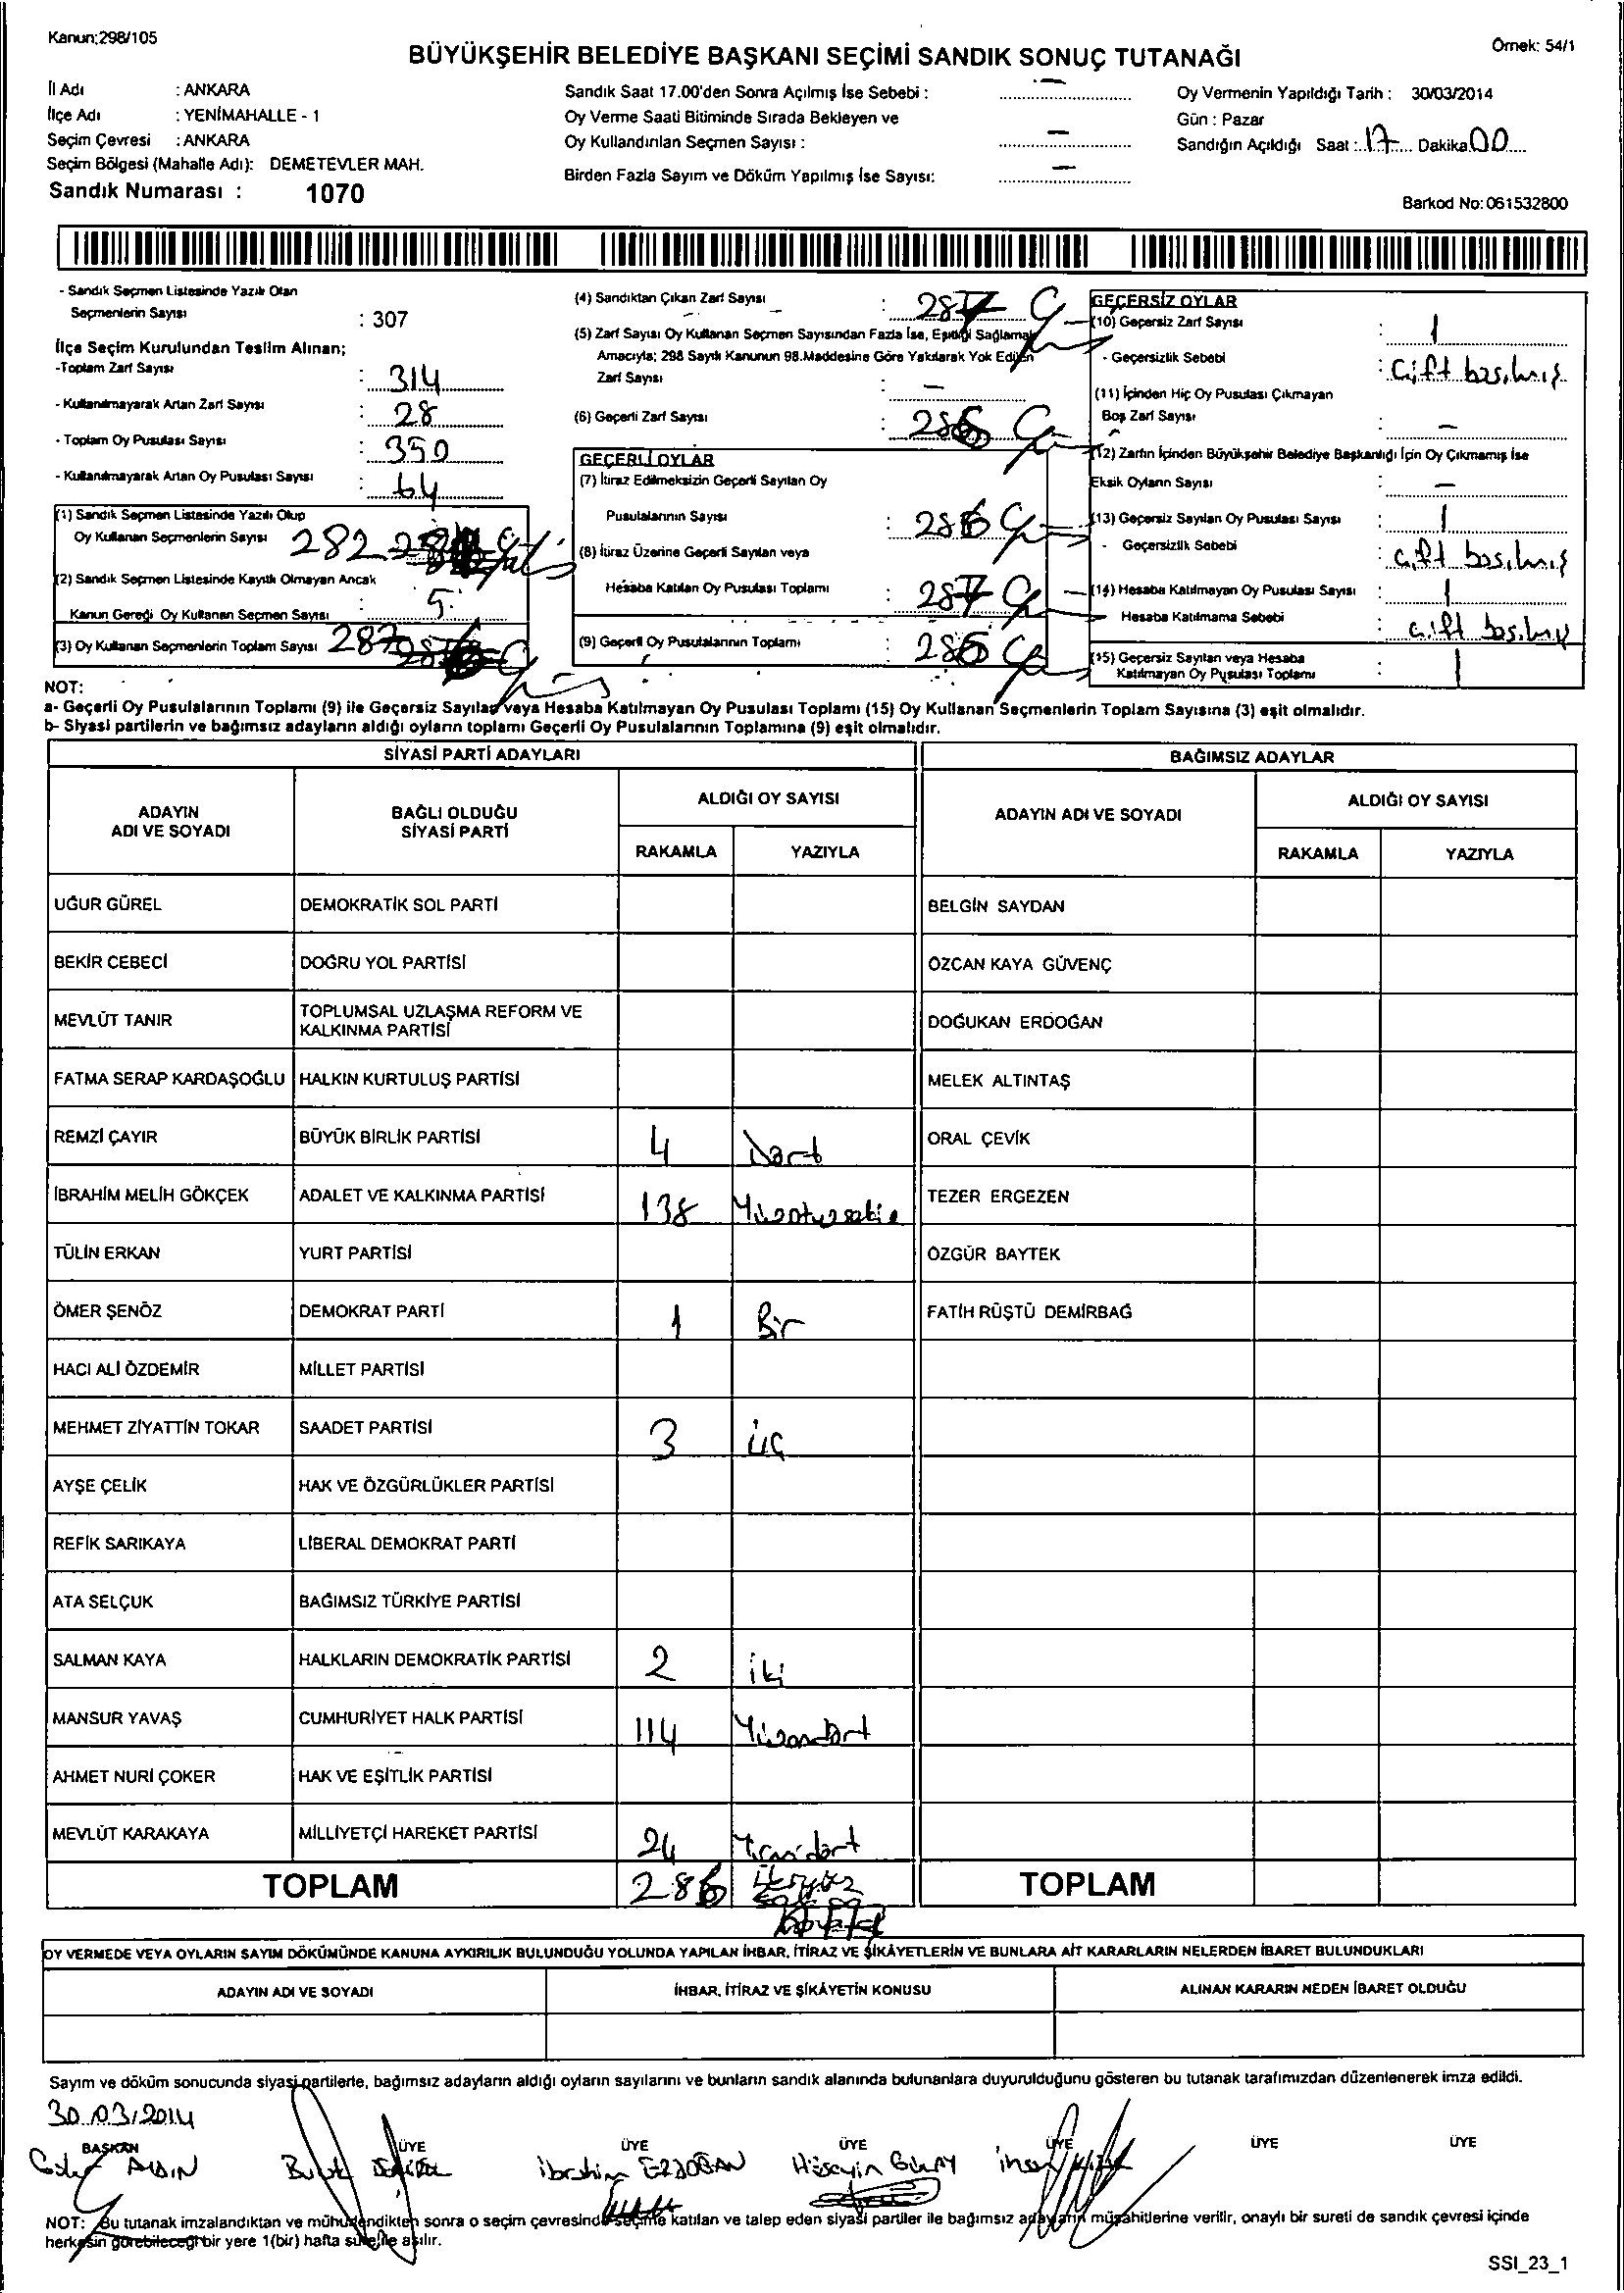 Kanun:298/105
Örnek: 54/1
BÜYÜKŞEHİR BELEDİYE BAŞKANI SEÇİMİ SANDIK SONUÇ TUTANAĞI
İl Adı : ANKARA
İlçe Adı : YENİMAHALLE - 1
Seçim Çevresi : ANKARA
Seçim Bölgesi (Mahalle Adı): DEMETEVLER MAH.
Sandık Numarası : 1070
Sandık Saat 17.00'den Sonra Açılmış İse Sebebi : —
Oy Verme Saati Bitiminde Sırada Bekleyen ve
Oy Kullandırılan Seçmen Sayısı : —
Birden Fazla Sayım ve Döküm Yapılmış İse Sayısı: —
Oy Vermenin Yapıldığı Tarih : 30/03/2014
Gün : Pazar
Sandığın Açıldığı Saat : 17 Dakika 00
Barkod No: 061532800
- Sandık Seçmen Listesinde Yazılı Olan
Seçmenlerin Sayısı : 307
İlçe Seçim Kurulundan Teslim Alınan;
-Toplam Zarf Sayısı : 314
- Kullanılmayarak Artan Zarf Sayısı : 28
- Toplam Oy Pusulası Sayısı : 350
- Kullanılmayarak Artan Oy Pusulası Sayısı : 64
(1) Sandık Seçmen Listesinde Yazılı Olup
Oy Kullanan Seçmenlerin Sayısı 282
(2) Sandık Seçmen Listesinde Kayıtlı Olmayan Ancak
Kanun Gereği Oy Kullanan Seçmen Sayısı : 5
(3) Oy Kullanan Seçmenlerin Toplam Sayısı 287
(4) Sandıktan Çıkan Zarf Sayısı : 287
(5) Zarf Sayısı Oy Kullanan Seçmen Sayısından Fazla İse, Eşitliği Sağlamak
Amacıyla; 298 Sayılı Kanunun 98.Maddesine Göre Yakılarak Yok Edilen
Zarf Sayısı : —
(6) Geçerli Zarf Sayısı : 286
GEÇERLİ OYLAR
(7) İtiraz Edilmeksizin Geçerli Sayılan Oy
Pusulalarının Sayısı : 286
(8) İtiraz Üzerine Geçerli Sayılan veya
Hesaba Katılan Oy Pusulası Toplamı : 287
(9) Geçerli Oy Pusulalarının Toplamı : 286
GEÇERSİZ OYLAR
(10) Geçersiz Zarf Sayısı : 1
- Geçersizlik Sebebi : Çift basılmış
(11) İçinden Hiç Oy Pusulası Çıkmayan
Boş Zarf Sayısı : —
(12) Zarfın İçinden Büyükşehir Belediye Başkanlığı İçin Oy Çıkmamış İse
Eksik Oyların Sayısı : —
(13) Geçersiz Sayılan Oy Pusulası Sayısı : 1
- Geçersizlik Sebebi : çift basılmış
(14) Hesaba Katılmayan Oy Pusulası Sayısı : 1
Hesaba Katılmama Sebebi : çift basılmış
(15) Geçersiz Sayılan veya Hesaba
Katılmayan Oy Pusulası Toplamı : 1
NOT:
a- Geçerli Oy Pusulalarının Toplamı (9) ile Geçersiz Sayılan veya Hesaba Katılmayan Oy Pusulası Toplamı (15) Oy Kullanan Seçmenlerin Toplam Sayısına (3) eşit olmalıdır.
b- Siyasi partilerin ve bağımsız adayların aldığı oyların toplamı Geçerli Oy Pusulalarının Toplamına (9) eşit olmalıdır.
SİYASİ PARTİ ADAYLARI BAĞIMSIZ ADAYLAR
ADAYIN ADI VE SOYADI BAĞLI OLDUĞU SİYASİ PARTİ ALDIĞI OY SAYISI RAKAMLA YAZIYLA ADAYIN ADI VE SOYADI ALDIĞI OY SAYISI RAKAMLA YAZIYLA
UĞUR GÜREL DEMOKRATİK SOL PARTİ BELGİN SAYDAN
BEKİR CEBECİ DOĞRU YOL PARTİSİ ÖZCAN KAYA GÜVENÇ
MEVLÜT TANIR TOPLUMSAL UZLAŞMA REFORM VE KALKINMA PARTİSİ DOĞUKAN ERDOĞAN
FATMA SERAP KARDAŞOĞLU HALKIN KURTULUŞ PARTİSİ MELEK ALTINTAŞ
REMZİ ÇAYIR BÜYÜK BİRLİK PARTİSİ 4 Dört ORAL ÇEVİK
İBRAHİM MELİH GÖKÇEK ADALET VE KALKINMA PARTİSİ 138 Yüzotuzsekiz TEZER ERGEZEN
TÜLİN ERKAN YURT PARTİSİ ÖZGÜR BAYTEK
ÖMER ŞENÖZ DEMOKRAT PARTİ 1 Bir FATİH RÜŞTÜ DEMİRBAĞ
HACI ALİ ÖZDEMİR MİLLET PARTİSİ
MEHMET ZİYATTİN TOKAR SAADET PARTİSİ 3 üç
AYŞE ÇELİK HAK VE ÖZGÜRLÜKLER PARTİSİ
REFİK SARIKAYA LİBERAL DEMOKRAT PARTİ
ATA SELÇUK BAĞIMSIZ TÜRKİYE PARTİSİ
SALMAN KAYA HALKLARIN DEMOKRATİK PARTİSİ 2 iki
MANSUR YAVAŞ CUMHURİYET HALK PARTİSİ 114 Yüzondört
AHMET NURİ ÇOKER HAK VE EŞİTLİK PARTİSİ
MEVLÜT KARAKAYA MİLLİYETÇİ HAREKET PARTİSİ 24 Yirmidört
TOPLAM 286 İkiyüz TOPLAM
OY VERMEDE VEYA OYLARIN SAYIM DÖKÜMÜNDE KANUNA AYKIRILIK BULUNDUĞU YOLUNDA YAPILAN İHBAR, İTİRAZ VE ŞİKÂYETLERİN VE BUNLARA AİT KARARLARIN NELERDEN İBARET BULUNDUKLARI
ADAYIN ADI VE SOYADI İHBAR, İTİRAZ VE ŞİKÂYETİN KONUSU ALINAN KARARIN NEDEN İBARET OLDUĞU
Sayım ve döküm sonucunda siyasi partilerle, bağımsız adayların aldığı oyların sayılarını ve bunların sandık alanında bulunanlara duyurulduğunu gösteren bu tutanak tarafımızdan düzenlenerek imza edildi.
30.03/2014
BAŞKAN ÜYE ÜYE ÜYE ÜYE ÜYE ÜYE
AYDIN İbrahim ERDOĞAN Hüseyin
NOT: Bu tutanak imzalandıktan ve mühürlendikten sonra o seçim çevresinde seçime katılan ve talep eden siyasi partiler ile bağımsız adayların müşahitlerine verilir, onaylı bir sureti de sandık çevresi içinde
herkesin görebileceği bir yere 1(bir) hafta süreyle asılır.
SSI_23_1